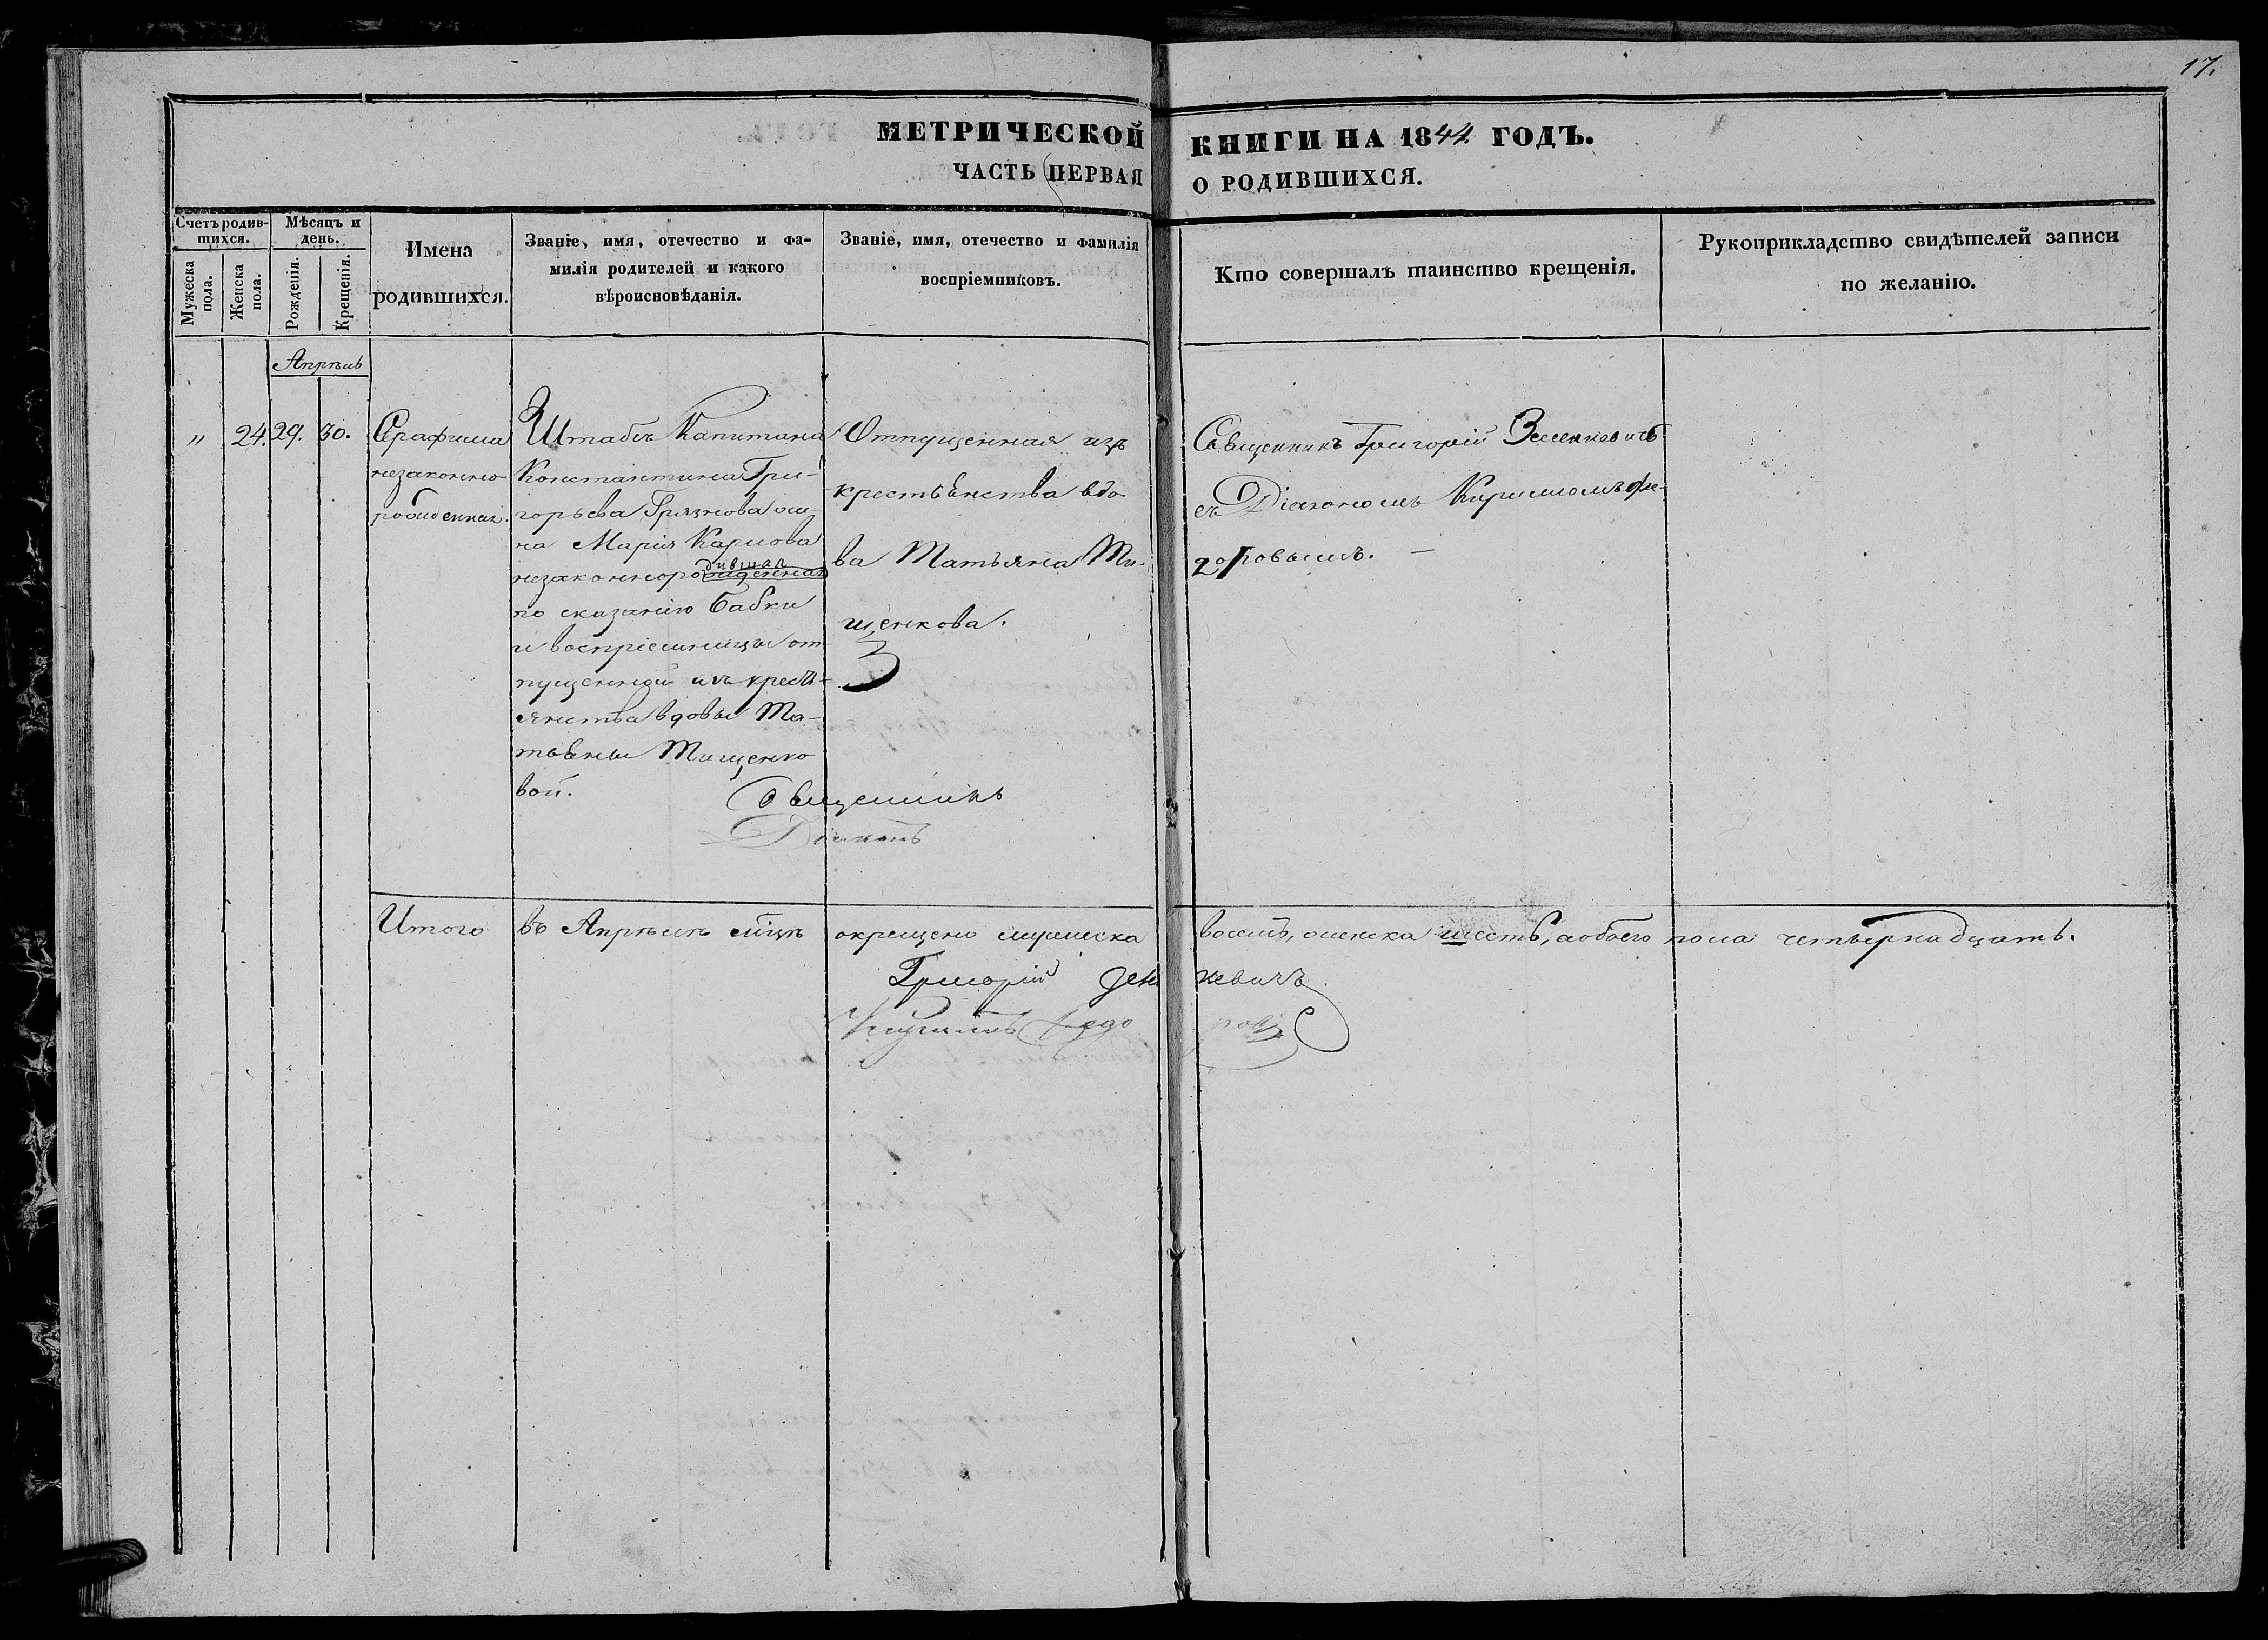 17.
МЕТРИЧЕСКОЙ КНИГИ НА 1844 ГОДЪ.
ЧАСТЬ ПЕРВАЯ О РОДИВШИХСЯ.
Счетъ родив-
шихся.
Мужеска
пола.
Женска
пола.
Мѣсяцъ и
день.
Рожденія.
Крещенія.
Имена
родившихся.
Званіе, имя, отечество и фа-
милія родителей и какого
вѣроисновѣданія.
Званіе, имя, отечество и фамилія
воспріемниковъ.
Кто совершалъ таинство крещенія.
Рукоприкладство свидѣтелей записи
по желанію.
Апрѣль
" 24. 29. 30.
Серафима
незаконно-
рожденная.
Штабсъ Капитана
Константина Гри-
горьева Грязнова же-
на Марія Карпова
незаконноро дившая
по сказанію бабки
и воспріемницы от-
пущенной изъ кресть-
янства вдовы Та-
тьяны Тищенко
вой.
Отпущенная изъ
крестьянства вдо-
ва Татьяна Ти-
щенкова.
Священникъ Григорій Зеленкевичь
съ Діакономъ Кириломъ Фе-
доровымъ.
Священникъ
Діаконъ
Итого въ Апрѣлѣ мѣцѣ окрещено мужеска восемь, женска шесть, а обоего пола четырнадцать.
Григорій Зен кевичъ
Федо ров